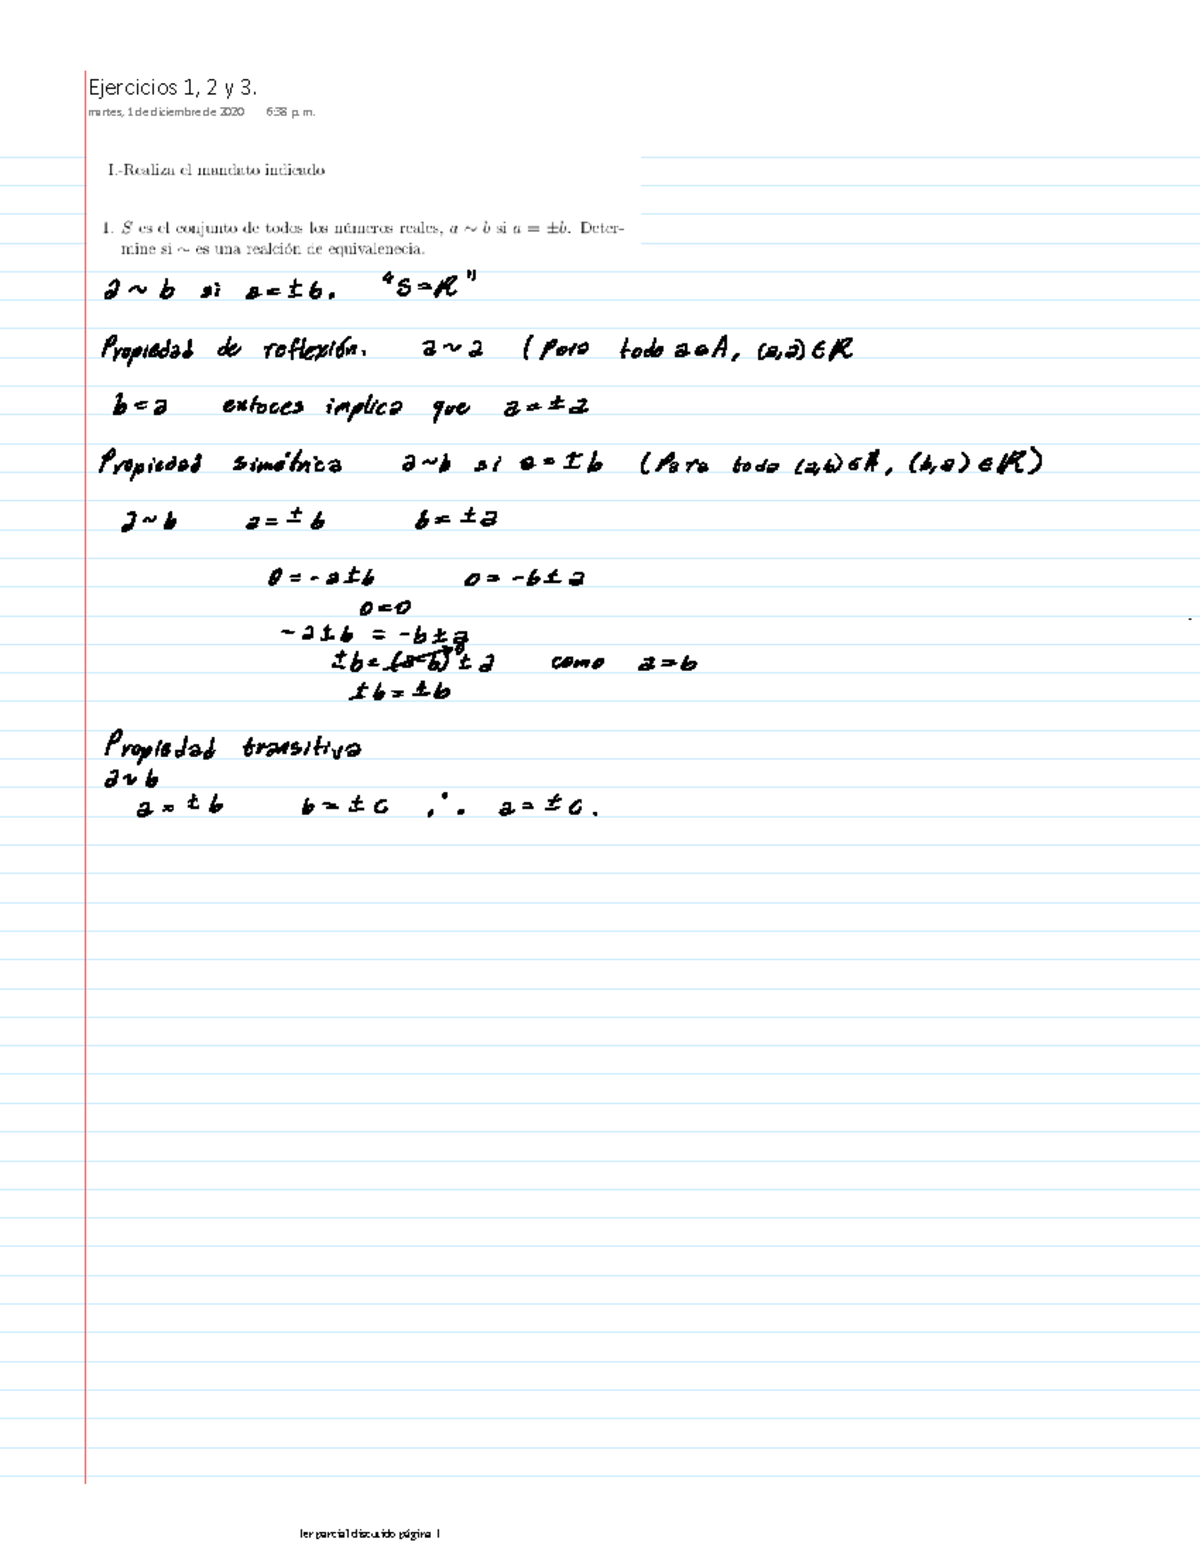 Ejercicios 1, 2 y 3.
martes, 1 de diciembre de 2020 6:38 p. m.
I.-Realiza el mandato indicado
1. S es el conjunto de todos los números reales, a ∼ b si a = ±b. Deter-
mine si ∼ es una realción de equivalenecia.
a ~ b si a = ± b. "S = ℝ"
Propiedad de reflexión. a ~ a ( Para todo a ∈ A, (a,a) ∈ ℝ
b = a entoces implica que a = ± a
Propiedad simétrica a ~ b si a = ± b (Para todo (a,b) ∈ ℝ, (b,a) ∈ ℝ)
a ~ b a = ± b b = ± a
0 = - a ± b 0 = - b ± a
0 = 0
- a ± b = - b ± a
± b = (a - b)⁰ ± a como a = b
± b = ± b
Propiedad transitiva
a ~ b
a = ± b b = ± c ∴ a = ± c.
1er parcial discutido página 1